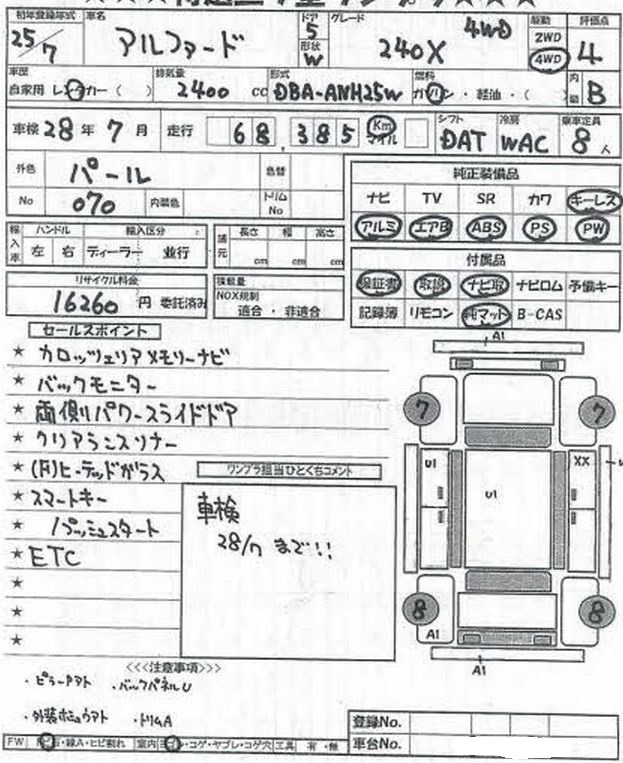 初年登録年式 車名 ドア グレード 駆動 評価点
25/7 アルファード 5 240X 4WD 2WD 4
形状 W 4WD
車歴 排気量 型式 燃料 内
自家用 レンタカー ( ) 2400 cc DBA-ANH25W ガソリン・軽油・( B
車検 28年 7月 走行 68,385 Km マイル シフト DAT 冷房 WAC 乗車定員 8人
外色 パール 色替
No 070 内装色 トリムNo
純正装備品
ナビ TV SR カワ キーレス
アルミ エアB ABS PS PW
輸入車 ハンドル 輸入区分 諸元 長さ 幅 高さ
左 右 ディーラー 並行 cm cm cm
付属品
保証書 取説 ナビ取 ナビロム 予備キー
記録簿 リモコン 純マット B-CAS
リサイクル料金 積載量
16260 円 委託済み NOX規制
適合・非適合
セールスポイント
★ カロッツェリアメモリーナビ
★ バックモニター
★ 両側パワースライドドア
★ クリアランスソナー
★ (F)ヒーテッドガラス
★ スマートキー
★ プッシュスタート
★ ETC
★
★
★
ワンプラ担当ひとくちコメント
車検
28/7 まで!!
A1
7 7
U1 U1 XX
8 8
A1
A1
<<<注意事項>>>
・ピラーPアト ・バックパネルU
・外装ボコウアト ・トリムA
登録No.
車台No.
FW 石・線A・ヒビ割れ 室内 ・コゲ・ヤブレ・コゲ穴 工具 有・無